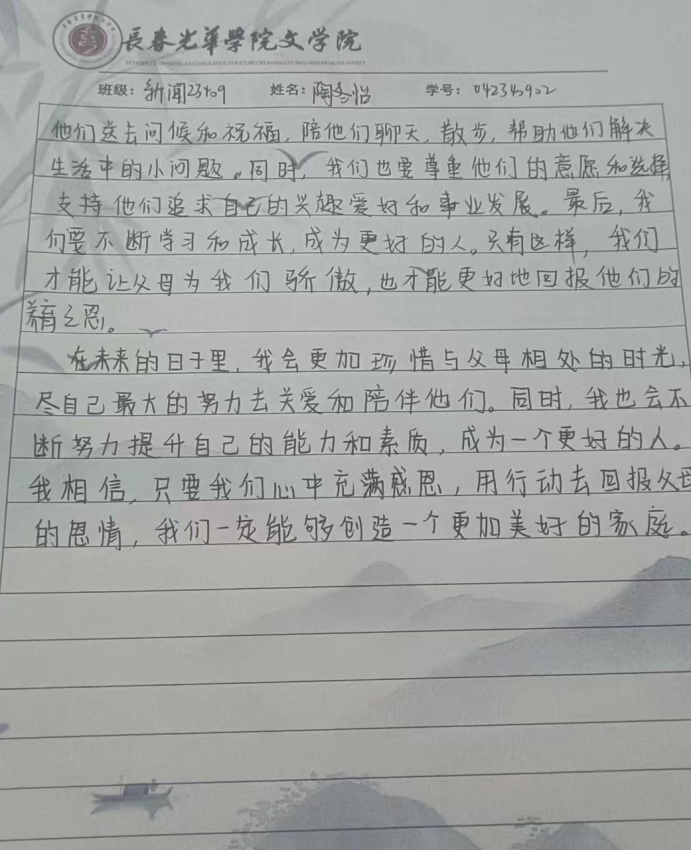 長春光華學院文学院
班级：新闻23409 姓名：陶冬怡 学号：042340902
他们送去问候和祝福，陪他们聊天，散步，帮助他们解决
生活中的小问题。同时，我们也要尊重他们的意愿和选择，
支持他们追求自己的兴趣爱好和事业发展。最后，我
们要不断学习和成长，成为更好的人。只有这样，我们
才能让父母为我们骄傲，也才能更好地回报他们的
养育之恩。
在未来的日子里，我会更加珍惜与父母相处的时光，
尽自己最大的努力去关爱和陪伴他们。同时，我也会不
断努力提升自己的能力和素质，成为一个更好的人。
我相信，只要我们心中充满感恩，用行动去回报父母
的恩情，我们一定能够创造一个更加美好的家庭。